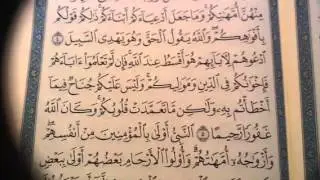 مِنْهُنَّ أُمَّهَٰتِكُمْ وَمَا جَعَلَ أَدْعِيَآءَكُمْ أَبْنَآءَكُمْ ذَٰلِكُمْ قَوْلُكُم
بِأَفْوَٰهِكُمْ وَٱللَّهُ يَقُولُ ٱلْحَقَّ وَهُوَ يَهْدِى ٱلسَّبِيلَ ٤
ٱدْعُوهُمْ لِءَابَآئِهِمْ هُوَ أَقْسَطُ عِندَ ٱللَّهِ فَإِن لَّمْ تَعْلَمُوٓا۟ ءَابَآءَهُمْ
فَإِخْوَٰنُكُمْ فِى ٱلدِّينِ وَمَوَٰلِيكُمْ وَلَيْسَ عَلَيْكُمْ جُنَاحٌ فِيمَآ
أَخْطَأْتُم بِهِۦ وَلَٰكِن مَّا تَعَمَّدَتْ قُلُوبُكُمْ وَكَانَ ٱللَّهُ
غَفُورًا رَّحِيمًا ٥ ٱلنَّبِىُّ أَوْلَىٰ بِٱلْمُؤْمِنِينَ مِنْ أَنفُسِهِمْ
وَأَزْوَٰجُهُۥٓ أُمَّهَٰتُهُمْ وَأُو۟لُوا۟ ٱلْأَرْحَامِ بَعْضُهُمْ أَوْلَىٰ بِبَعْضٍ